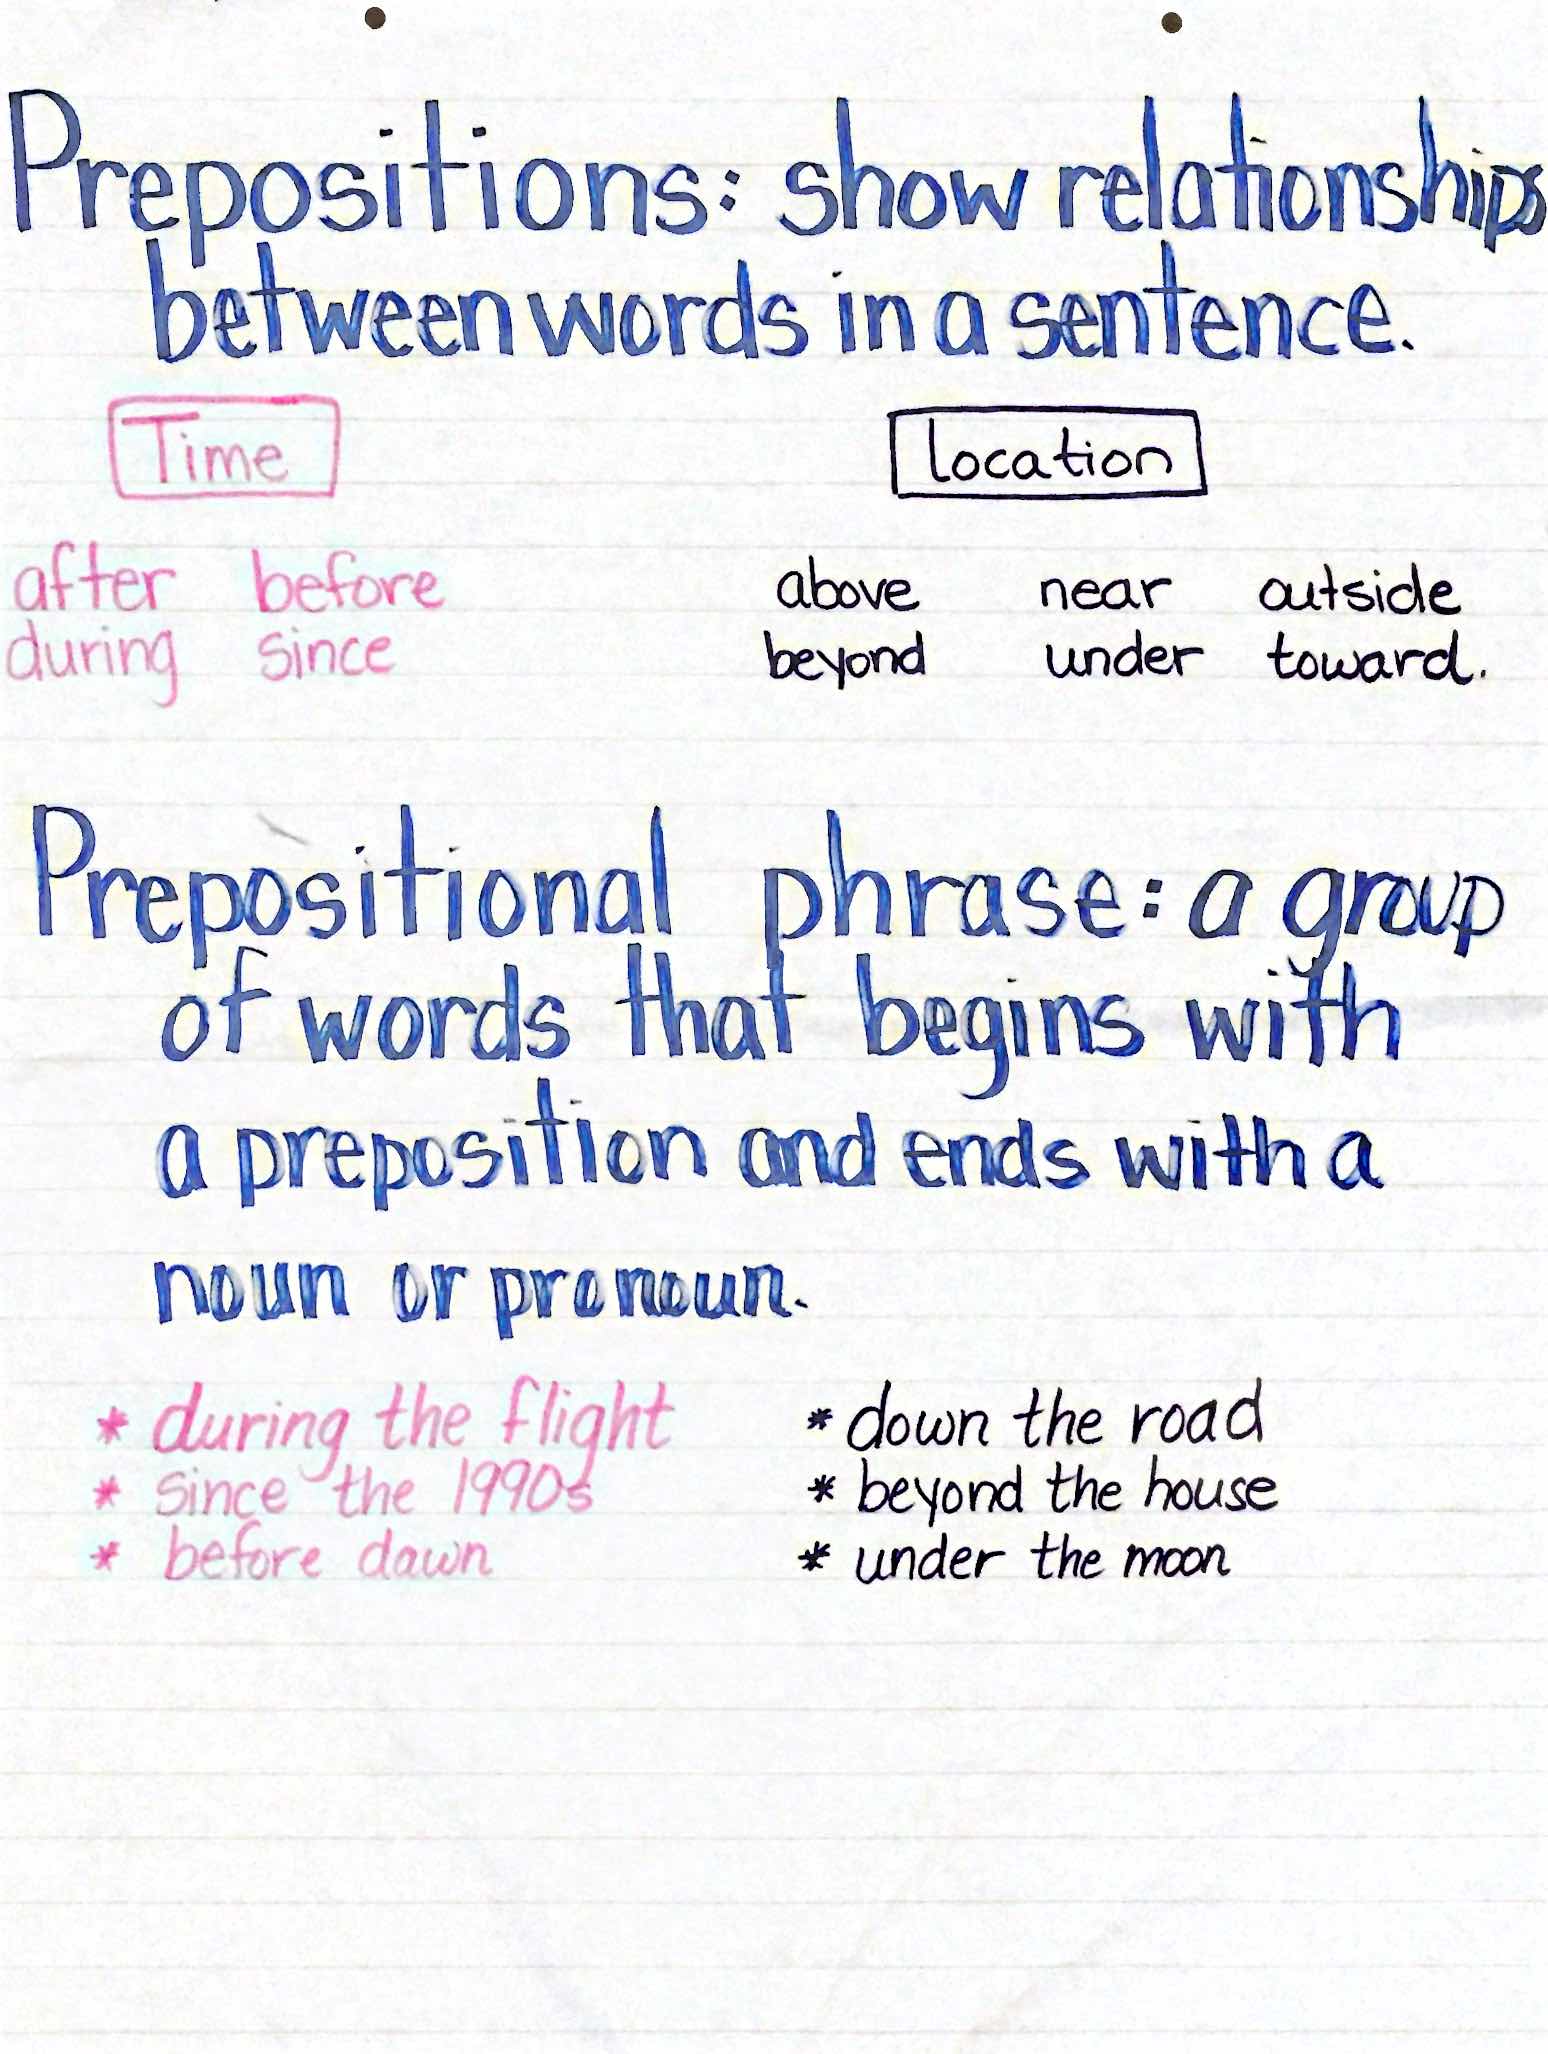 Prepositions: show relationships
between words in a sentence.
Time
location
after before
during since
above near outside
beyond under toward.
Prepositional phrase: a group
of words that begins with
a preposition and ends with a
noun or pronoun.
* during the flight
* since the 1990s
* before dawn
* down the road
* beyond the house
* under the moon